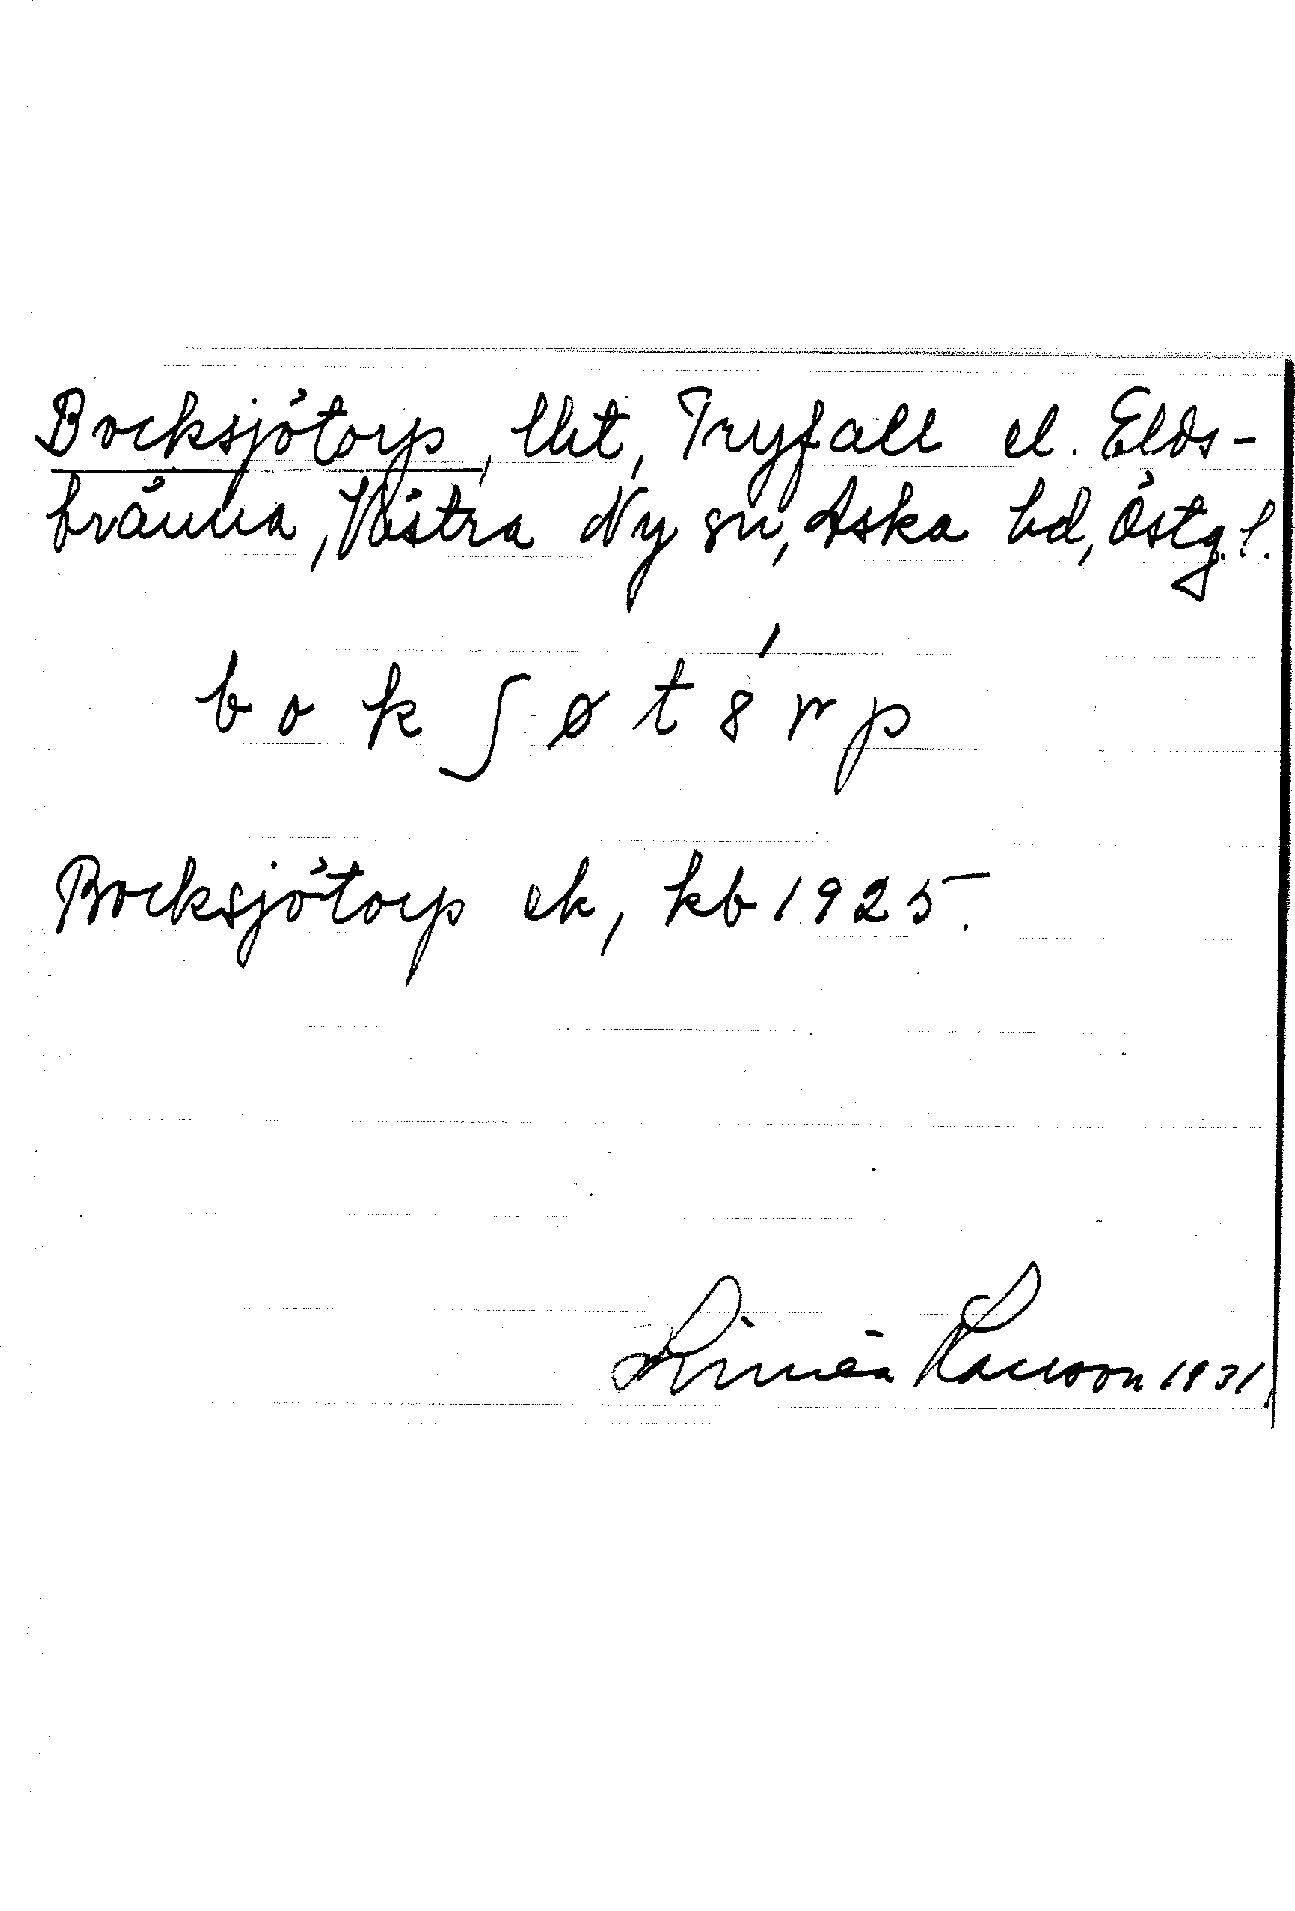 Bocksjötorp, lht, Tryfall el. Elds-
bränna, Västra Ny sn, Aska hd, Östg. l.
b o k ʃ ø t 8 ́ r p
Bocksjötorp ek, kb 1925.
Linnéa Larsson 1931.